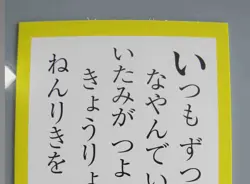 いつも ずつ
なやんでい
いたみが つよ
きょうりょ
ねんりきを